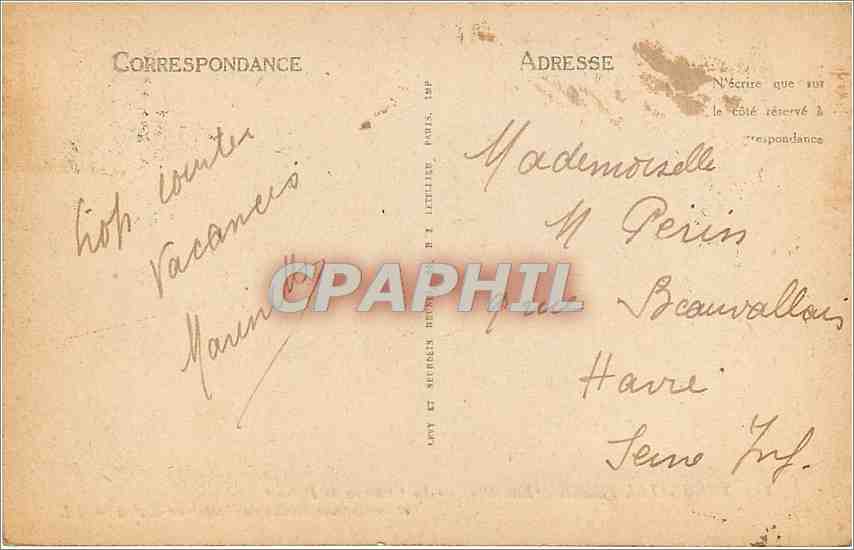 CORRESPONDANCE
ADRESSE
N'écrire que sur
le côté réservé à
respondance
Trop courtes
vacances
Mademoiselle
M Perin
rue Beauvallais
Havre
Seine Inf.
LEVY ET NEURDEIN RÉUNIS
LETELLIER, PARIS. IMP
CPAPHIL